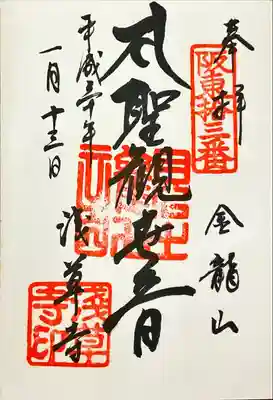 奉拝
阪東拾三番
金龍山
聖観世音
浅草寺
淺草寺印
平成三十年
一月十三日